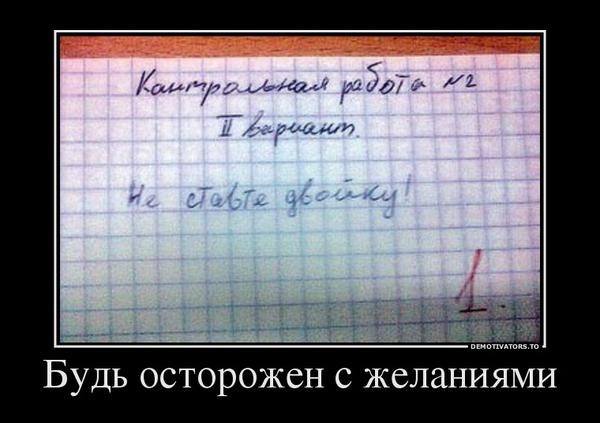 Контрольная работа №2
II вариант.
Не ставте двойку!
1.
DEMOTIVATORS.TO
Будь осторожен с желаниями